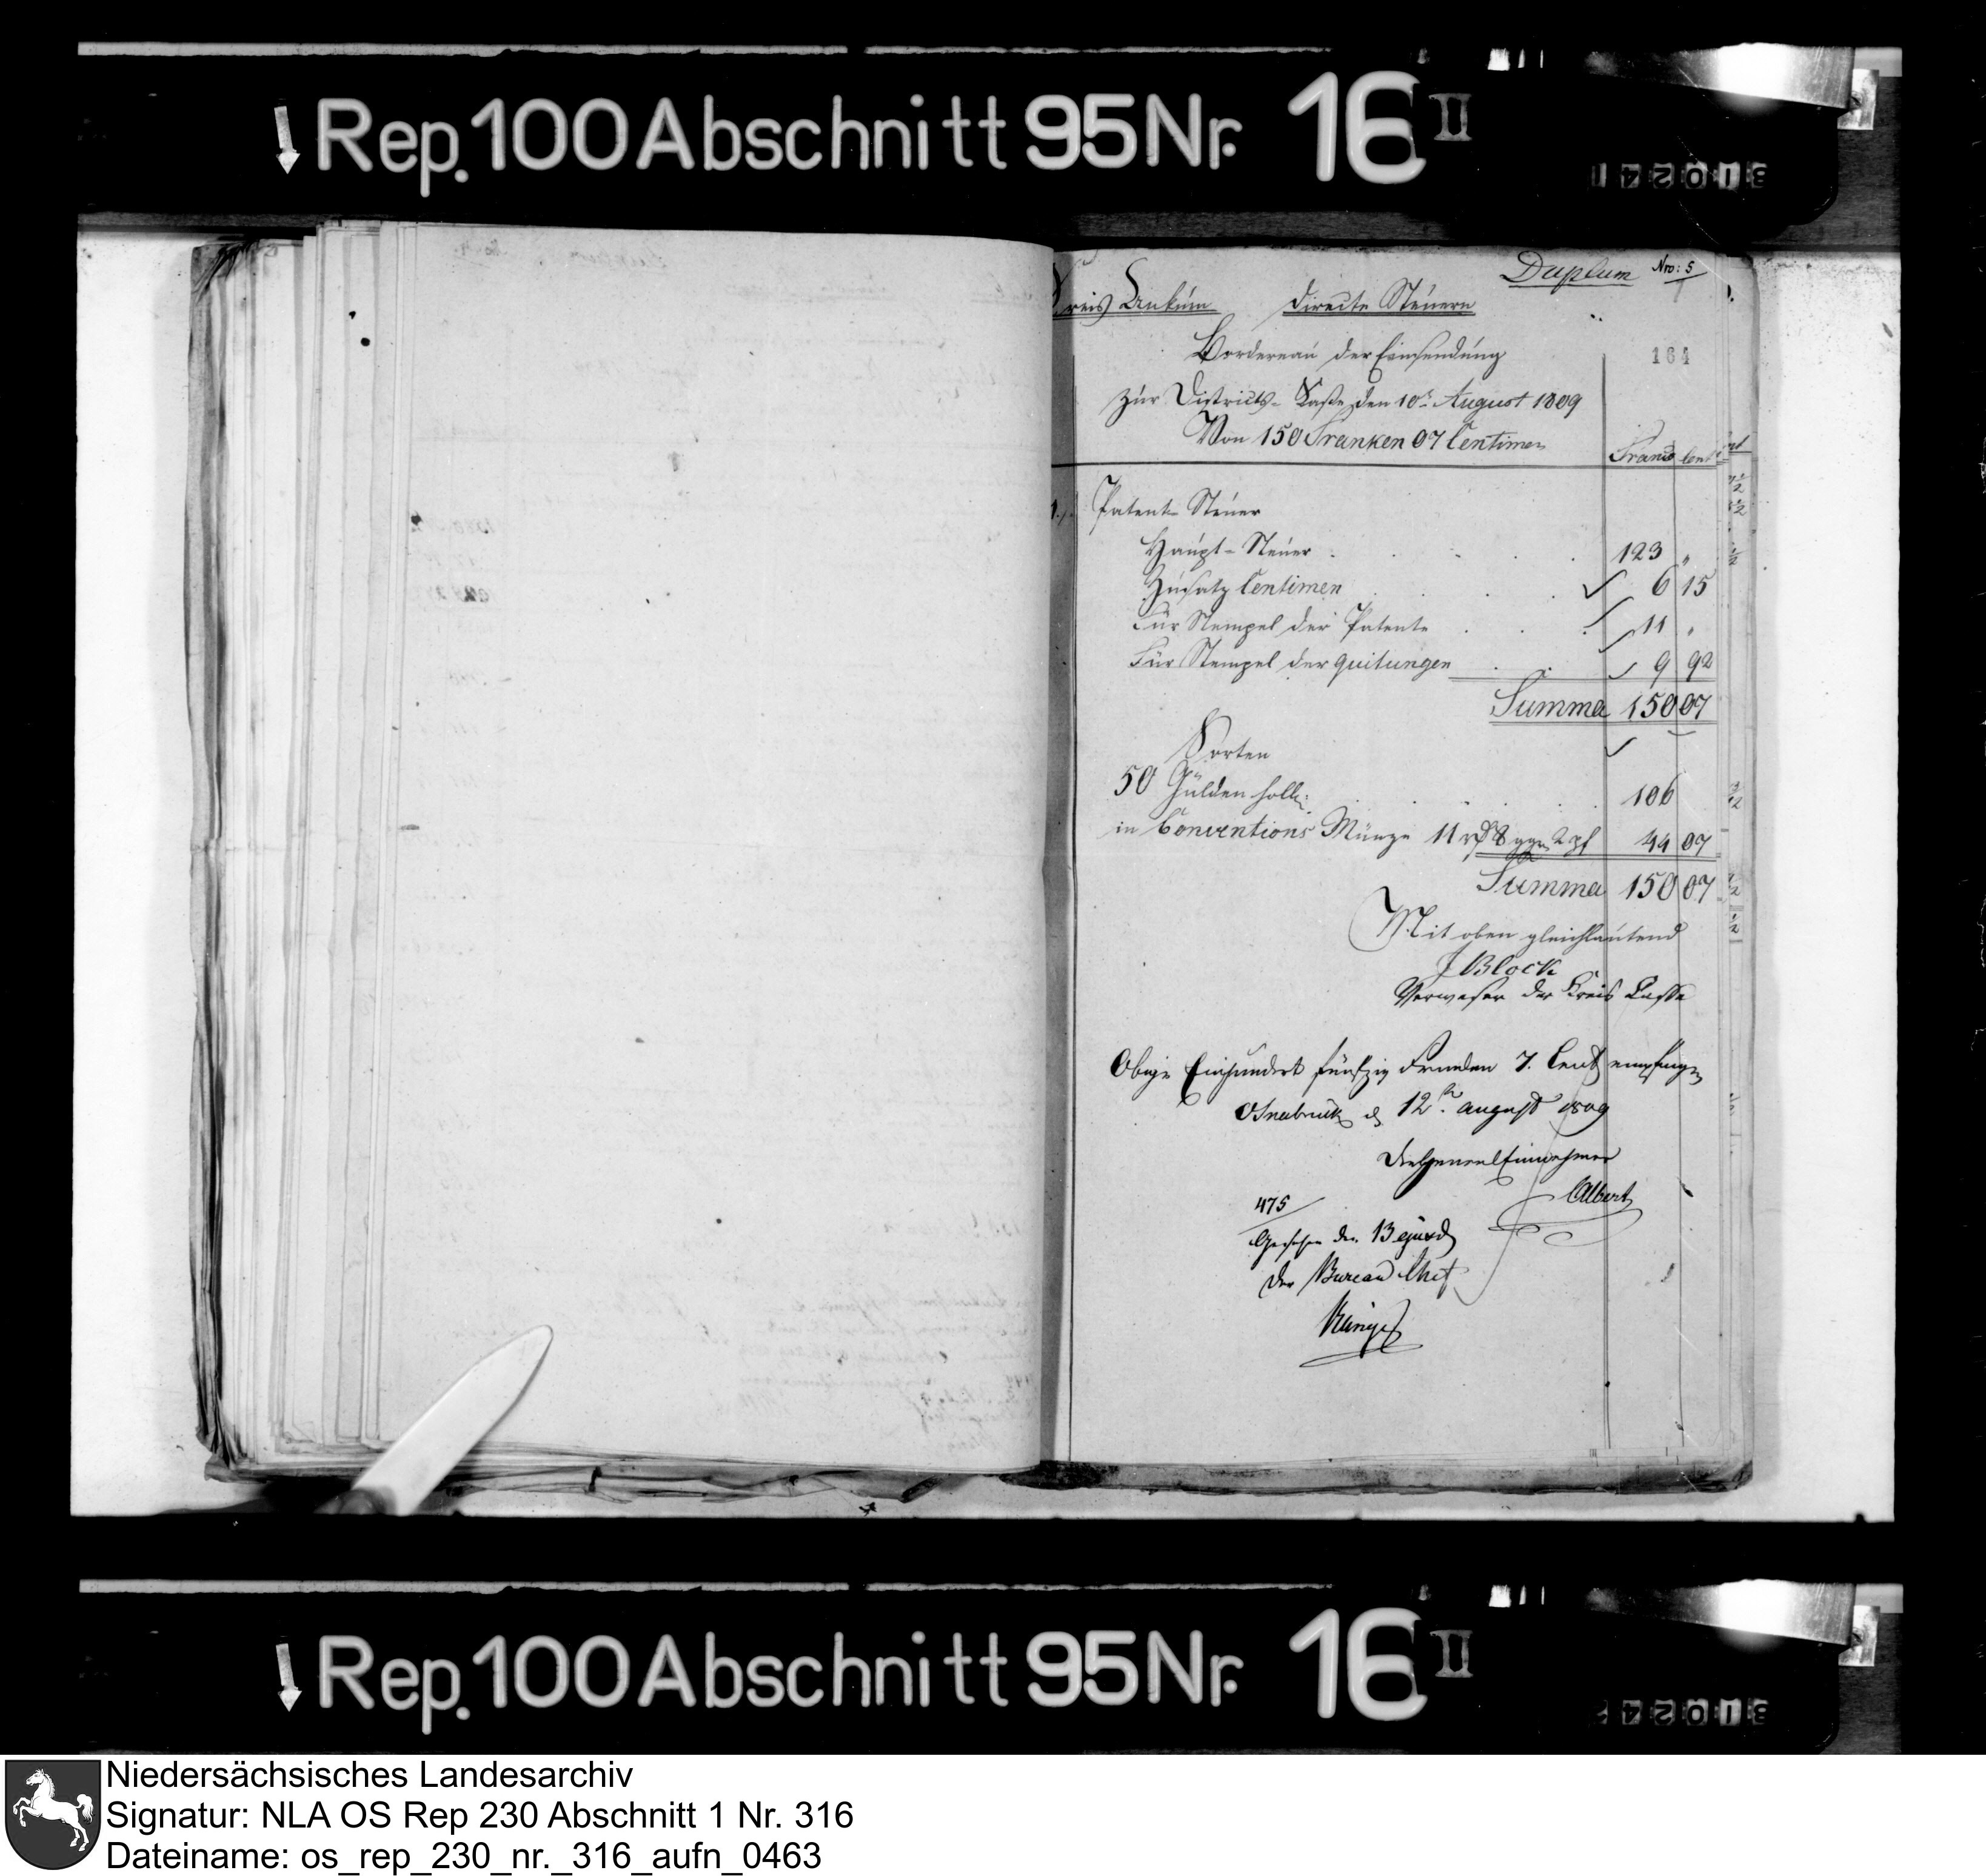 Rep. 100 Abschnitt 95 Nr. 16 II
Duplum Nro: 5
Kreis Ankum Directe Steuern
Bordereau der Einsendung
164
zur Districts-Kasse den 10t August 1809
Von 150 Franken 07 Centimen
Francs Cent
1.) Patent-Steuer
Haupt-Steuer 123 "
Zusatz Centimen 6 15
Für Stempel der Patente 11 "
Für Stempel der quitungen 9 92
Summa 150 07
Sorten
50 Gulden holl: 106
in Conventions Münze 11 rt 8 ggr 2 pf 44 07
Summa 150 07
Mit oben gleichlautend
J Block
Verweser der Kreis Casse
Obige Einhundert fünfzig Franken 7. Cent empfangen
Osnabrück d 12ten august 1809
Der General Einnehmer
Albert
475
Gesehen den 13 ejusd
Der Bureau Chef
Rep. 100 Abschnitt 95 Nr. 16 II
Niedersächsisches Landesarchiv
Signatur: NLA OS Rep 230 Abschnitt 1 Nr. 316
Dateiname: os_rep_230_nr._316_aufn_0463